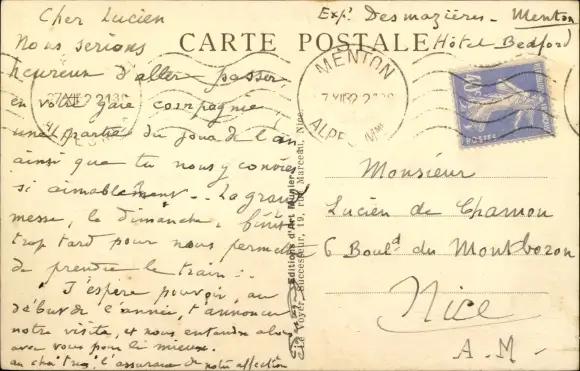 Cher Lucien
Nous serions
heureux d'aller passer,
en votre gaie compagnie,
une partie du jour de l'an
ainsi que tu nous y convies
si aimablement. La grand
messe, le dimanche, finit
trop tard pour nous permettre
de prendre le train.
J'espère pouvoir, au
début de l'année, t'annoncer
notre visite, et nous entendre alors
avec vous pour le mieux.
l'assurance de notre affection
CARTE POSTALE
Expr Desmazières - Menton
Hôtel Bedford
MENTON
ALPES MMES
40c
POSTES
Editions d'Art Munier
Successeur, 19, rue Marceau, Nice
Monsieur
Lucien de Chamon
6 Bould du Montboron
Nice
A. M.